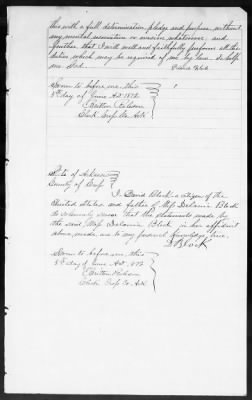 this with a full determination, pledge and purpose, without
any mental reservation or evasion whatsoever, and
further, that I will well and faithfully perform all the
duties which may be required of me by law. So help
me God.
Sworn to before me, this
5th day of June A.D. 1872
Clerk Cross Co. Ark
State of Arkansas
County of Cross
I David Block, a citizen of the
United States and father of Miss Delamie Block
do solemnly swear that the statements made by
the said Miss Delamie Block in her affidavit
above, made, are to my personal knowledge, true.
D Block
Sworn to before me, this
5th day of June A.D. 1872
Clerk Cross Co. Ark